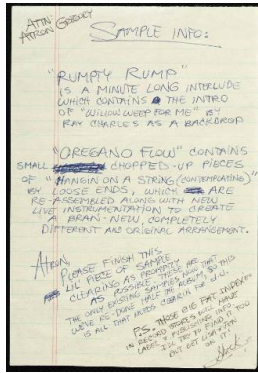 ATTN
ATRON GREGORY
SAMPLE INFO:
"RUMPTY RUMP"
IS A MINUTE LONG INTERLUDE
WHICH CONTAINS THE INTRO
OF "WILLOW WEEP FOR ME" BY
RAY CHARLES AS A BACKDROP
"OREGANO FLOW" CONTAINS
SMALL CHOPPED-UP PIECES
OF "HANGIN ON A STRING (CONTEMPLATING)"
BY LOOSE ENDS, WHICH ARE
RE-ASSEMBLED ALONG WITH NEW
LIVE INSTRUMENTATION TO CREATE
A BRAN-NEW COMPLETELY
DIFFERENT AND ORIGINAL ARRANGEMENT.
ATRON,
PLEASE FINISH THIS
LIL' PIECE OF SAMPLE
CLEARING AS PROMPTLY
AS POSSIBLE. THESE ARE
THE ONLY EXISTING SAMPLES NOW THAT
WE'VE RE-DONE HALF THE ALBUM, SO THIS
IS ALL THAT NEEDS CLEARIN FOR D.U.
P.S. THOSE
IN RECORD STORES WILL HAVE
LABEL & PUBLISHING INFO.
I'LL TRY TO FIND IT TOO
BUT GET
ON IT!
Shock